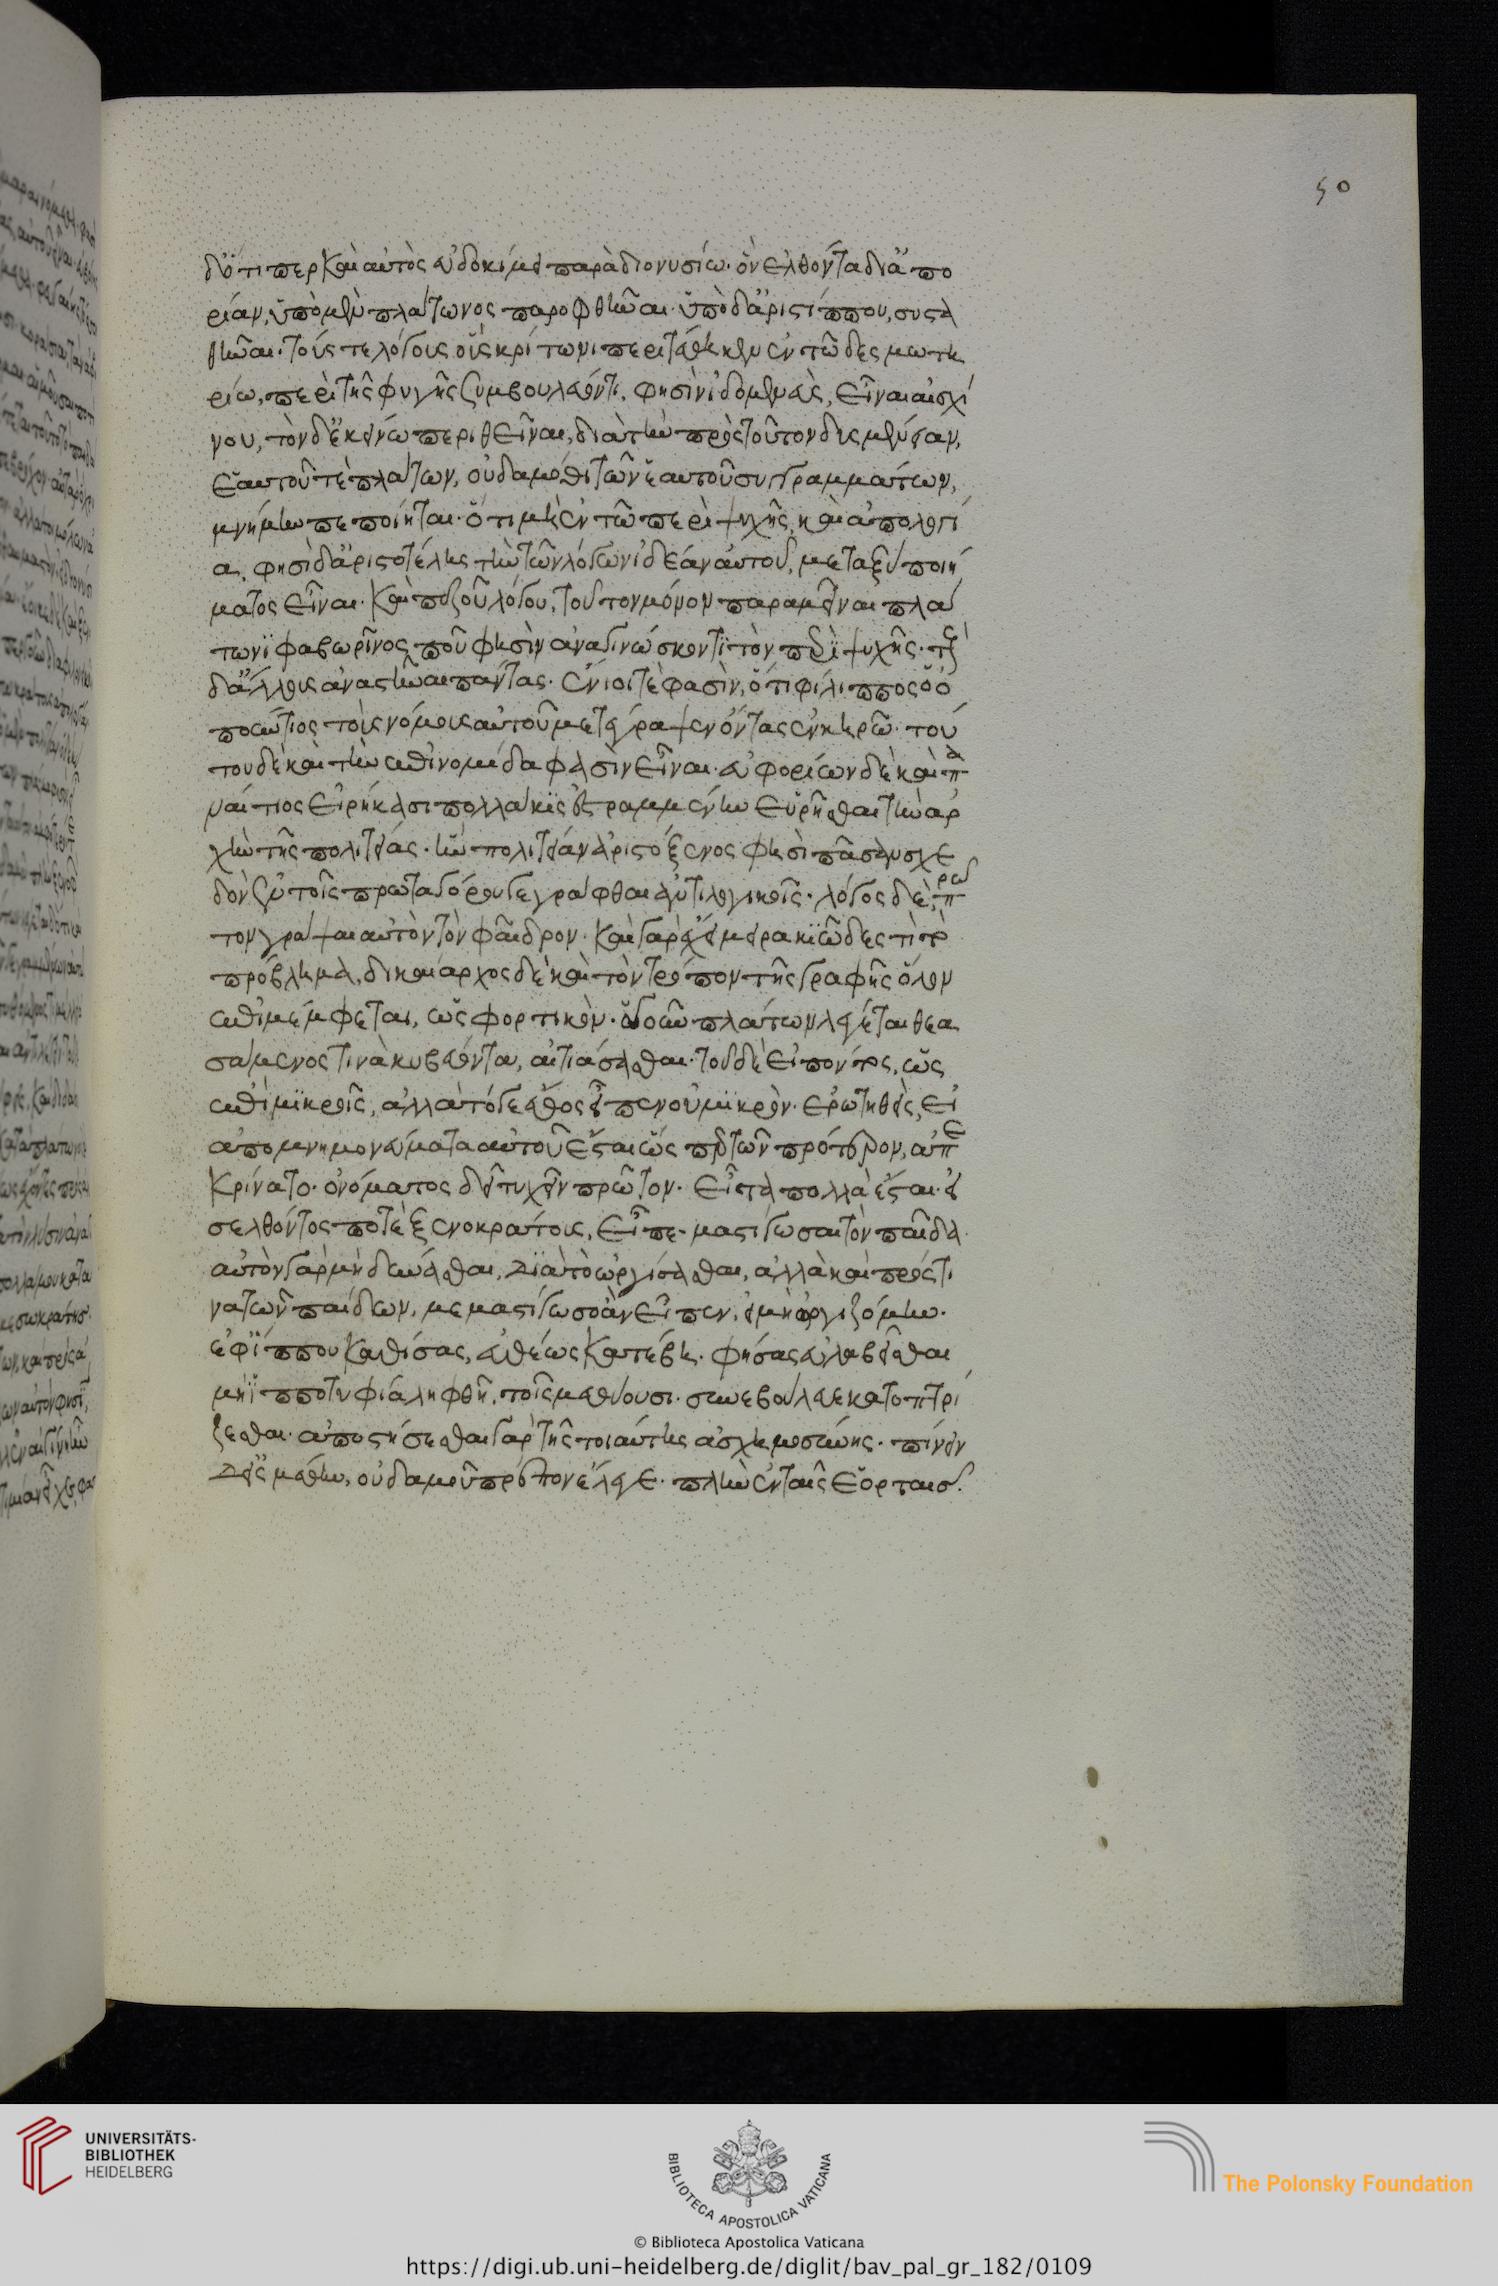 50
διότι περ καὶ αὐτὸς εὐδοκίμει παρὰ διονυσίω· ὃν ἐλθόντα δι' ἀπο
ρίαν, ὑπὸ μὲν πλάτωνος παροφθῆναι· ὑπὸ δ' ἀριστίππου, συστα
θῆναι· τούς τε λόγους οὓς κρίτωνι περιτέθεικεν ἐν τῶ δεσμωτη
ρίω, περὶ τῆς φυγῆς ξυμβουλεύοντι, φησὶν ἰδομενεὺς, εἶναι αἰσχί
νου, τὸν δ' ἐκείνω περιθεῖναι, διὰ τὴν πρὸς τοῦτον δυσμένειαν,
ἑαυτοῦ τε πλάτων, οὐδαμόθι τῶν ἑαυτοῦ συγγραμμάτων,
μνήμην πεποίηται· ὅτι μὴ ἐν τῶ περὶ ψυχῆς, καὶ ἀπολογί
α, φησὶ δ' ἀριστοτέλης τὴν τῶν λόγων ἰδέαν αὐτοῦ, μεταξὺ ποιή
ματος εἶναι· καὶ πεζοῦ λόγου, τοῦτον μόνον παραμεῖναι πλά
τωνι φαβωρῖνος που φησὶν ἀναγινώσκοντι τὸν περὶ ψυχῆς· τοὺς
δ' ἄλλους ἀναστῆναι πάντας· ἔνιοί τε φασὶν, ὅτι φίλιππος ὁ ὀ
πούντιος τοὺς νόμους αὐτοῦ μετέγραψεν ὄντας ἐν κηρῶ· τού
του δὲ καὶ τὴν ἐπινομίδα φασὶν εἶναι· εὐφορίων δὲ καὶ πα
ναίτιος εἰρήκασι πολλάκις ἐστραμμένην εὑρῆσθαι τὴν ἀρ
χὴν τῆς πολιτείας· ἣν πολιτείαν ἀριστόξενος φησὶ πᾶσαν σχε
δὸν ἐν τοῖς πρωταγόρου γεγράφθαι ἀντιλογικοῖς· λόγος δὲ, πρῶ
τον γράψαι αὐτὸν τὸν φαῖδρον· καὶ γὰρ ἔχει μειρακιῶδες τι τὸ
πρόβλημα, δικαίαρχος δὲ καὶ τὸν τρόπον τῆς γραφῆς ὅλον
ἐπιμέμφεται, ὡς φορτικόν· ὁ γοῦν πλάτων λέγεται θεα
σάμενος τινὰ κυβεύοντα, αἰτιάσασθαι· τοῦ δὲ εἰπόντος, ὡς
ἐπὶ μικροῖς, ἀλλὰ τό γε ἔθος εἶπεν οὐ μικρόν· ἐρωτηθεὶς, εἰ
ἀπομνημονεύματα αὐτοῦ ἔσται ὡς περ τῶν πρότερον, ἀπε
κρίνατο· ὀνόματος δεῖ τυχεῖν πρῶτον· εἶτα πολλὰ ἔσται· εἰ
σελθόντος ποτὲ ξενοκράτους, εἶπε· μαστίγωσαι τὸν παῖδα·
αὐτὸν γὰρ μὴ δύνασθαι, διὰ τὸ ὠργίσθαι, ἀλλὰ καὶ πρός τι
να τῶν παίδων, μεμαστίγωσο ἂν εἶπεν, εἰ μὴ ὠργιζόμην·
ἐφ' ἵππου καθίσας, εὐθέως κατέβη· φήσας εὐλαβεῖσθαι
μὴ ἱπποτυφία ληφθῆ, τοῖς μεθύουσι· συνεβούλευε κατοπτρί
ζεσθαι· ἀποστήσεσθαι γὰρ τῆς τοιαύτης ἀσχημοσύνης· πίνειν
δ' εἰς μέθην, οὐδαμοῦ πρέπον ἔλεγε· πλὴν ἐν ταῖς ἑορταῖς
UNIVERSITÄTS-
BIBLIOTHEK
HEIDELBERG
BIBLIOTECA APOSTOLICA VATICANA
© Biblioteca Apostolica Vaticana
The Polonsky Foundation
https://digi.ub.uni-heidelberg.de/diglit/bav_pal_gr_182/0109